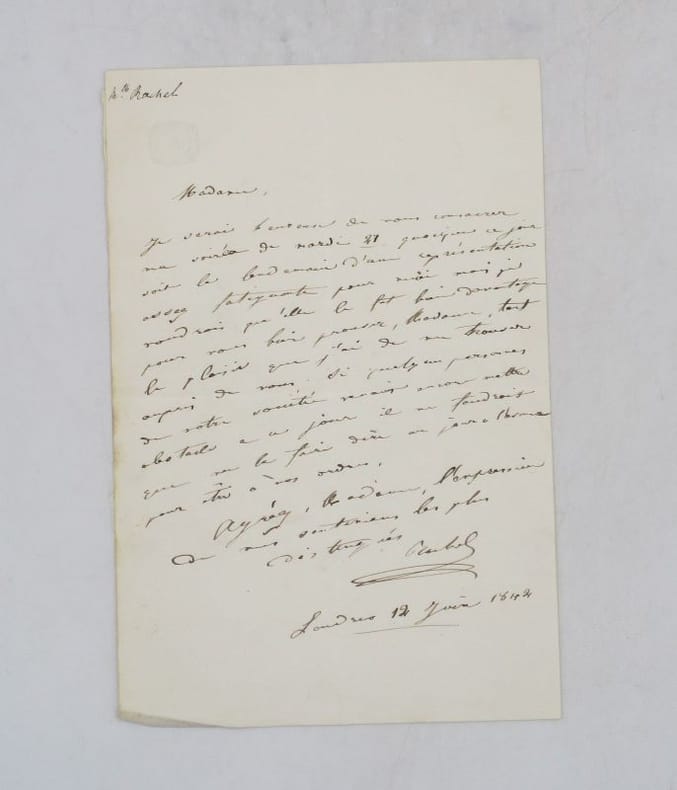 Mlle Rachel
Madame,
Je serais heureuse de vous consacrer
ma soirée de mardi 21 quoique ce jour
soit le lendemain d'une représentation
assez fatiguante pour moi mais je
voudrais qu'elle le fut bien davantage
pour vous bien prouver, Madame, tout
le plaisir que j'ai de me trouver
auprès de vous. Si quelques personnes
de votre société
obstacle a ce jour il ne faudrait
que me le faire dire un jour a l'avance
pour être à vos ordres.
Agréez, Madame, l'expression
de mes sentimens les plus
distingués
Rachel
Londres 12 Juin 1842